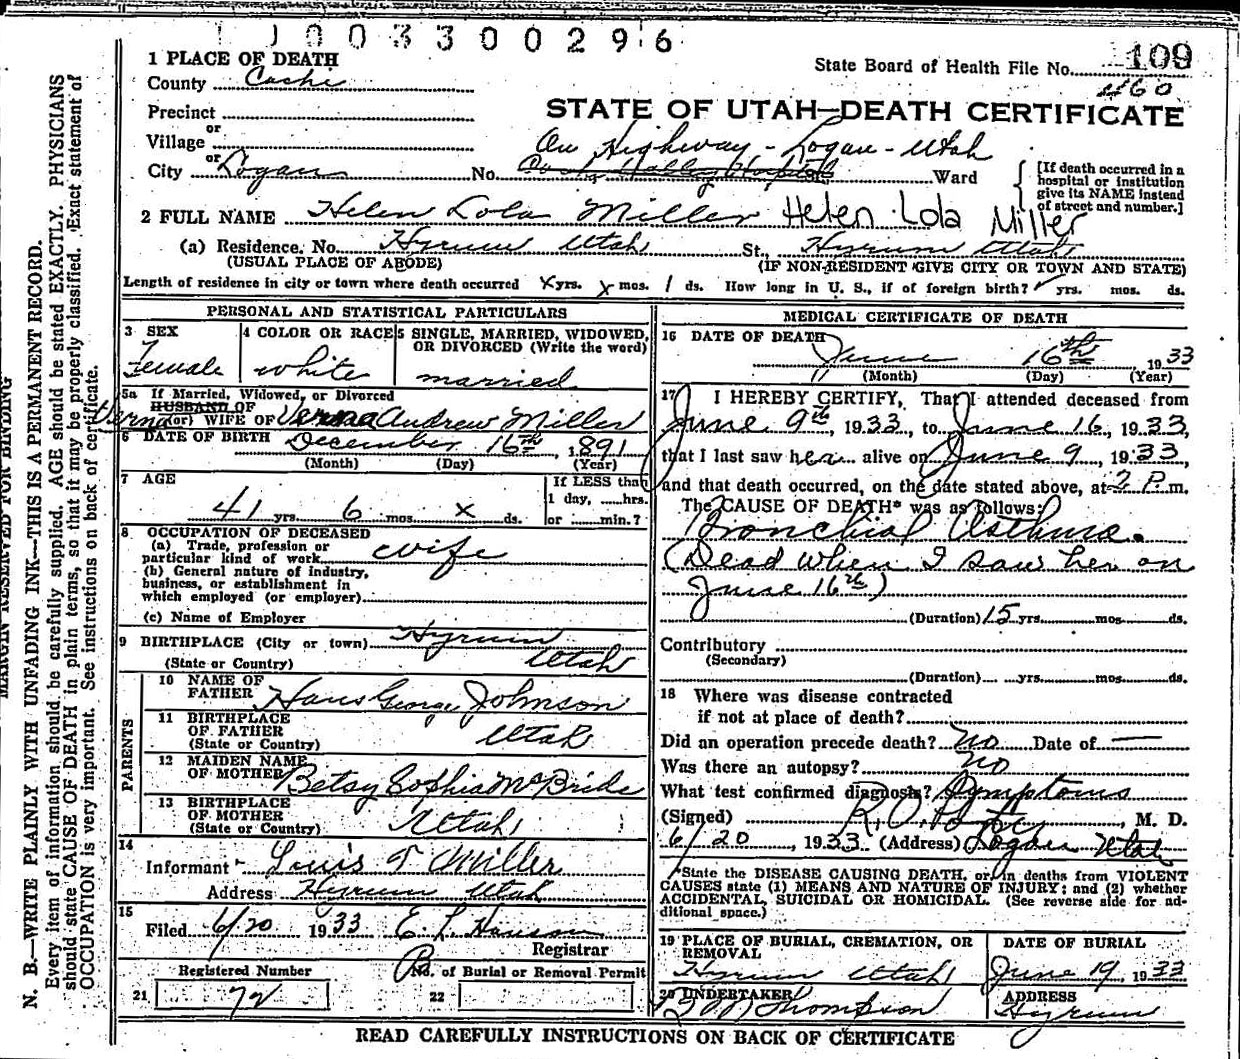 1 0 0 3 3 0 0 2 9 6
109
State Board of Health File No.
460
1 PLACE OF DEATH
County Cache
STATE OF UTAH—DEATH CERTIFICATE
Precinct
or
Village
On Highway - Logan - Utah
or
City Logan No. Cache Valley Hospital Ward
[If death occurred in a
hospital or institution
give its NAME instead
of street and number.]
2 FULL NAME Helen Lola Miller Helen Lola Miller
(a) Residence. No. Hyrum Utah St. Hyrum Utah
(USUAL PLACE OF ABODE) (IF NON-RESIDENT GIVE CITY OR TOWN AND STATE)
Length of residence in city or town where death occurred x yrs. x mos. 1 ds. How long in U. S., if of foreign birth? yrs. mos. ds.
PERSONAL AND STATISTICAL PARTICULARS
3 SEX
Female
4 COLOR OR RACE
white
5 SINGLE, MARRIED, WIDOWED,
OR DIVORCED (Write the word)
married
5a If Married, Widowed, or Divorced
HUSBAND OF
(or) WIFE OF Verna Andrew Miller
6 DATE OF BIRTH December 16th, 1891
(Month) (Day) (Year)
7 AGE
41 yrs. 6 mos. x ds.
If LESS than
1 day, ......hrs.
or ......min.?
8 OCCUPATION OF DECEASED
(a) Trade, profession or
particular kind of work wife
(b) General nature of industry,
business, or establishment in
which employed (or employer)
(c) Name of Employer
9 BIRTHPLACE (City or town) Hyrum
(State or Country) Utah
PARENTS
10 NAME OF
FATHER Hans George Johnson
11 BIRTHPLACE
OF FATHER
(State or Country) Utah
12 MAIDEN NAME
OF MOTHER Betsy Sophia McBride
13 BIRTHPLACE
OF MOTHER
(State or Country) Utah
14
Informant Louis T Miller
Address Hyrum Utah
15
Filed 6/20 1933 E. L. Hanson
Registrar
Registered Number
21 72
No. of Burial or Removal Permit
22
MEDICAL CERTIFICATE OF DEATH
16 DATE OF DEATH
June 16th 1933
(Month) (Day) (Year)
17 I HEREBY CERTIFY, That I attended deceased from
June 9th, 1933, to June 16, 1933,
that I last saw her alive on June 9, 1933,
and that death occurred, on the date stated above, at 2 P. m.
The CAUSE OF DEATH* was as follows:
Bronchial Asthma.
(Dead when I saw her on
June 16th)
(Duration) 15 yrs. mos. ds.
Contributory
(Secondary)
(Duration) yrs. mos. ds.
18 Where was disease contracted
if not at place of death?
Did an operation precede death? No Date of —
Was there an autopsy? no
What test confirmed diagnosis? Symptoms
(Signed) R. O. , M. D.
6/20, 1933 (Address) Logan Utah
*State the DISEASE CAUSING DEATH, or, in deaths from VIOLENT
CAUSES state (1) MEANS AND NATURE OF INJURY; and (2) whether
ACCIDENTAL, SUICIDAL OR HOMICIDAL. (See reverse side for ad-
ditional space.)
19 PLACE OF BURIAL, CREMATION, OR
REMOVAL
Hyrum Utah
DATE OF BURIAL
June 19, 1933
20 UNDERTAKER
Thompson
ADDRESS
Hyrum
READ CAREFULLY INSTRUCTIONS ON BACK OF CERTIFICATE
MARGIN RESERVED FOR BINDING
N. B.—WRITE PLAINLY WITH UNFADING INK—THIS IS A PERMANENT RECORD.
Every item of information should be carefully supplied. AGE should be stated EXACTLY. PHYSICIANS
should state CAUSE OF DEATH in plain terms, so that it may be properly classified. Exact statement of
OCCUPATION is very important. See instructions on back of certificate.